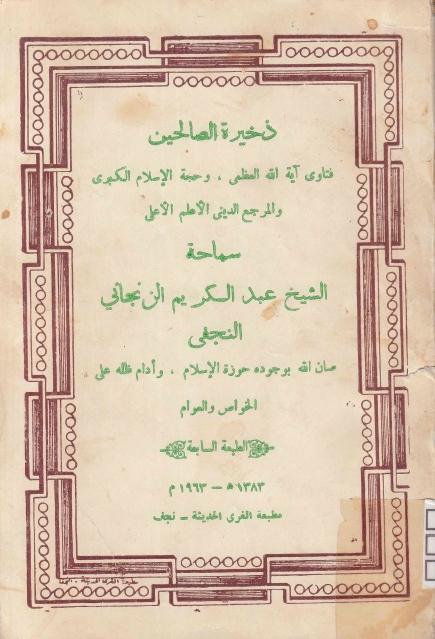 ذخيرة الصالحين
فتاوى آية الله العظمى ، وحجة الإسلام الكبرى
والمرجع الديني الأعلم الأعلى
سماحة
الشيخ عبد الكريم الزنجاني
النجفي
صان الله بوجوده حوزة الإسلام ، وأدام ظله على
الخواص والعوام
الطبعة السابعة
١٣٨٣ ه – ١٩٦٣ م
مطبعة الغري الحديثة – نجف